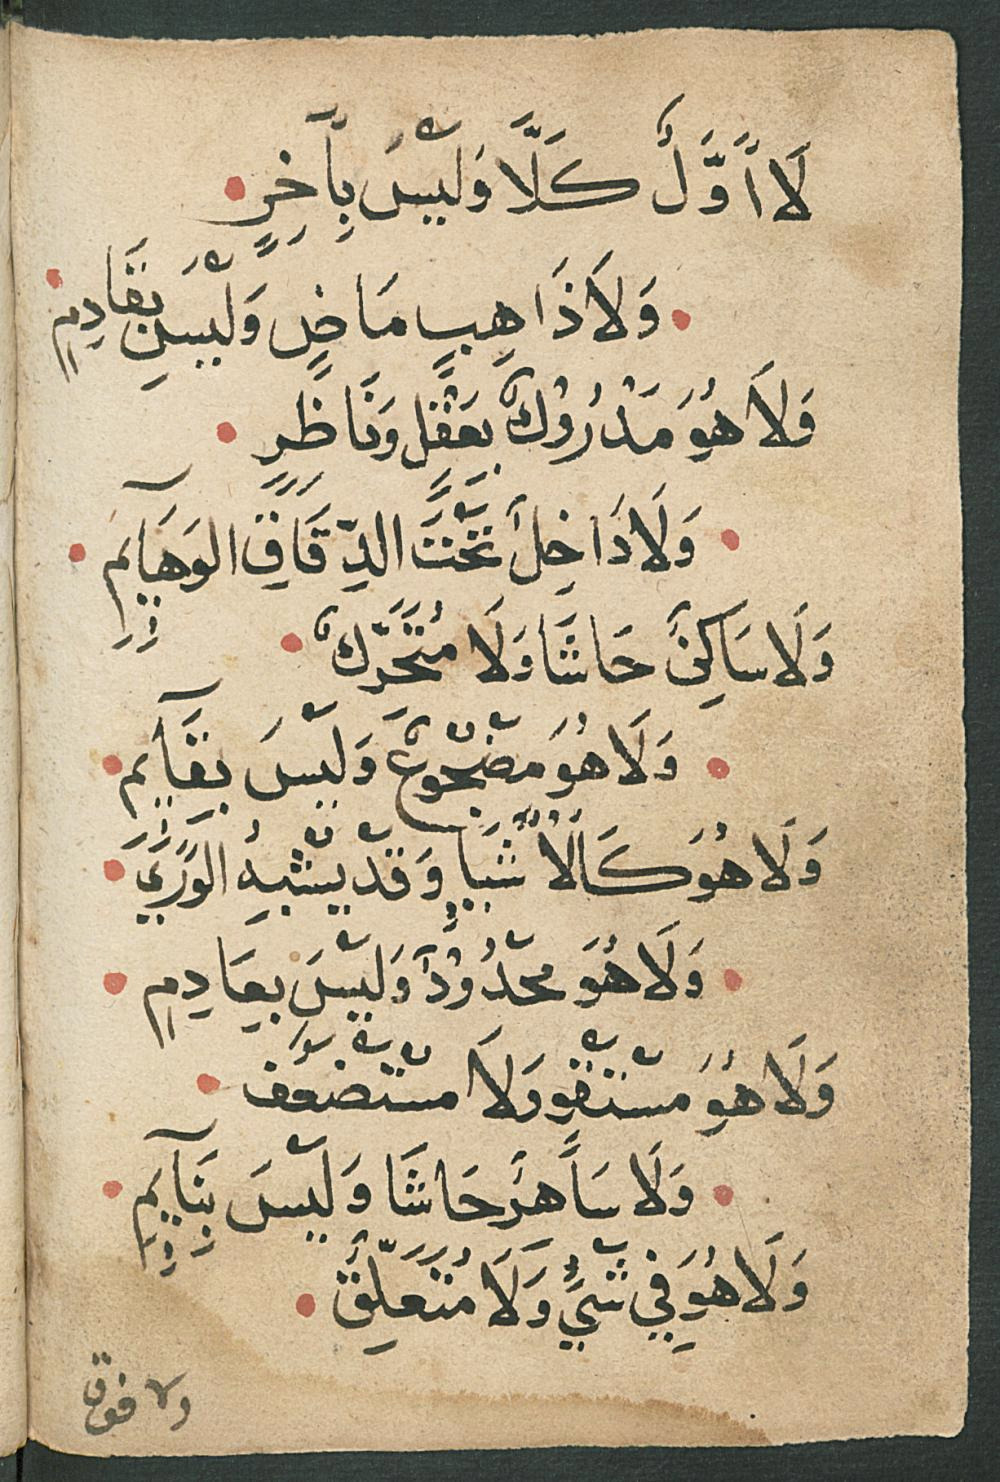 لَا اَوَّلٌ كَلَّا وَلَيْسَ بِآخِرٍ
وَلَا ذَاهِبٍ مَاضٍ وَلَيْسَ بِقَادِمٍ
وَلَا هُوَ مَدْرُوْكٌ بِعَقْلٍ وَنَاظِرٍ
وَلَا دَاخِلٌ تَحْتَ الدِّقَاقِ الوَهَآيِم
وَلَا سَاكِنٌ حَاشَا وَلَا مُتَحَرِّكٌ
وَلَا هُوَ مَضْجُوْعٌ وَلَيْسَ بِقَآيِم
وَلَا هُوَ كَالْاَشْبَاءِ وَقَدْ يُشْبِهُ الوَرَى
وَلَا هُوَ مَحْدُوْدٌ وَلَيْسَ بِعَادِمٍ
وَلَا هُوَ مسْتَقْو وَلَا مسْتَضْعَف
وَلَا سَاهِرٌ حَاشَا وَلَيْسَ بِنَآيِمٍ
وَلَا هُوَ فِي شَيْءٍ وَلَا مُتَعَلِّقٌ
ولا فوق